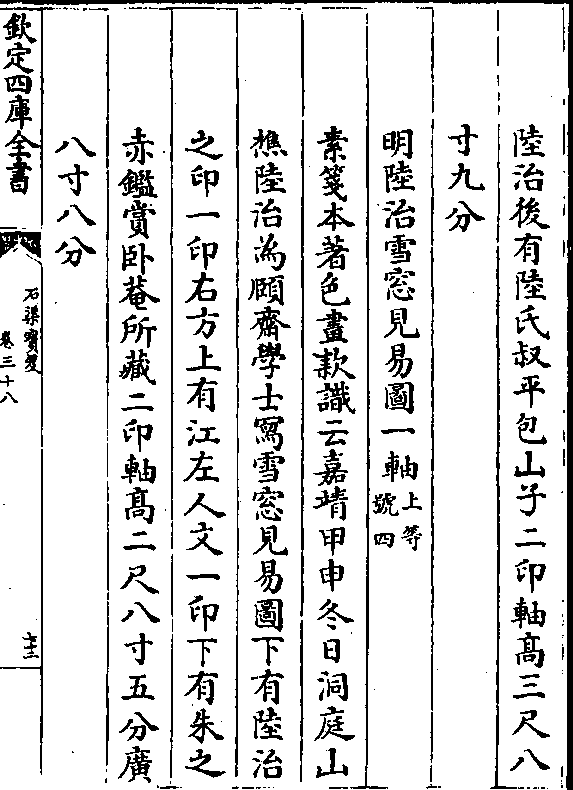 陸治後有陸氏叔平包山子二印軸髙三尺八
寸九分
明陸治雪窓見易圖一軸上等號四
素箋本著色畫款識云嘉靖甲申冬日洞庭山
樵陸治為頥齋學士寫雪窓見易圖下有陸治
之印一印右方上有江左人文一印下有朱之
赤鑑賞卧菴所藏二印軸髙二尺八寸五分廣
八寸八分
欽定四庫全書
石渠寳笈
卷三十八